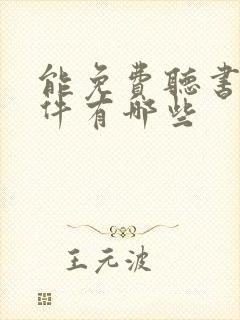 能免費聽書
件有哪些
王元波